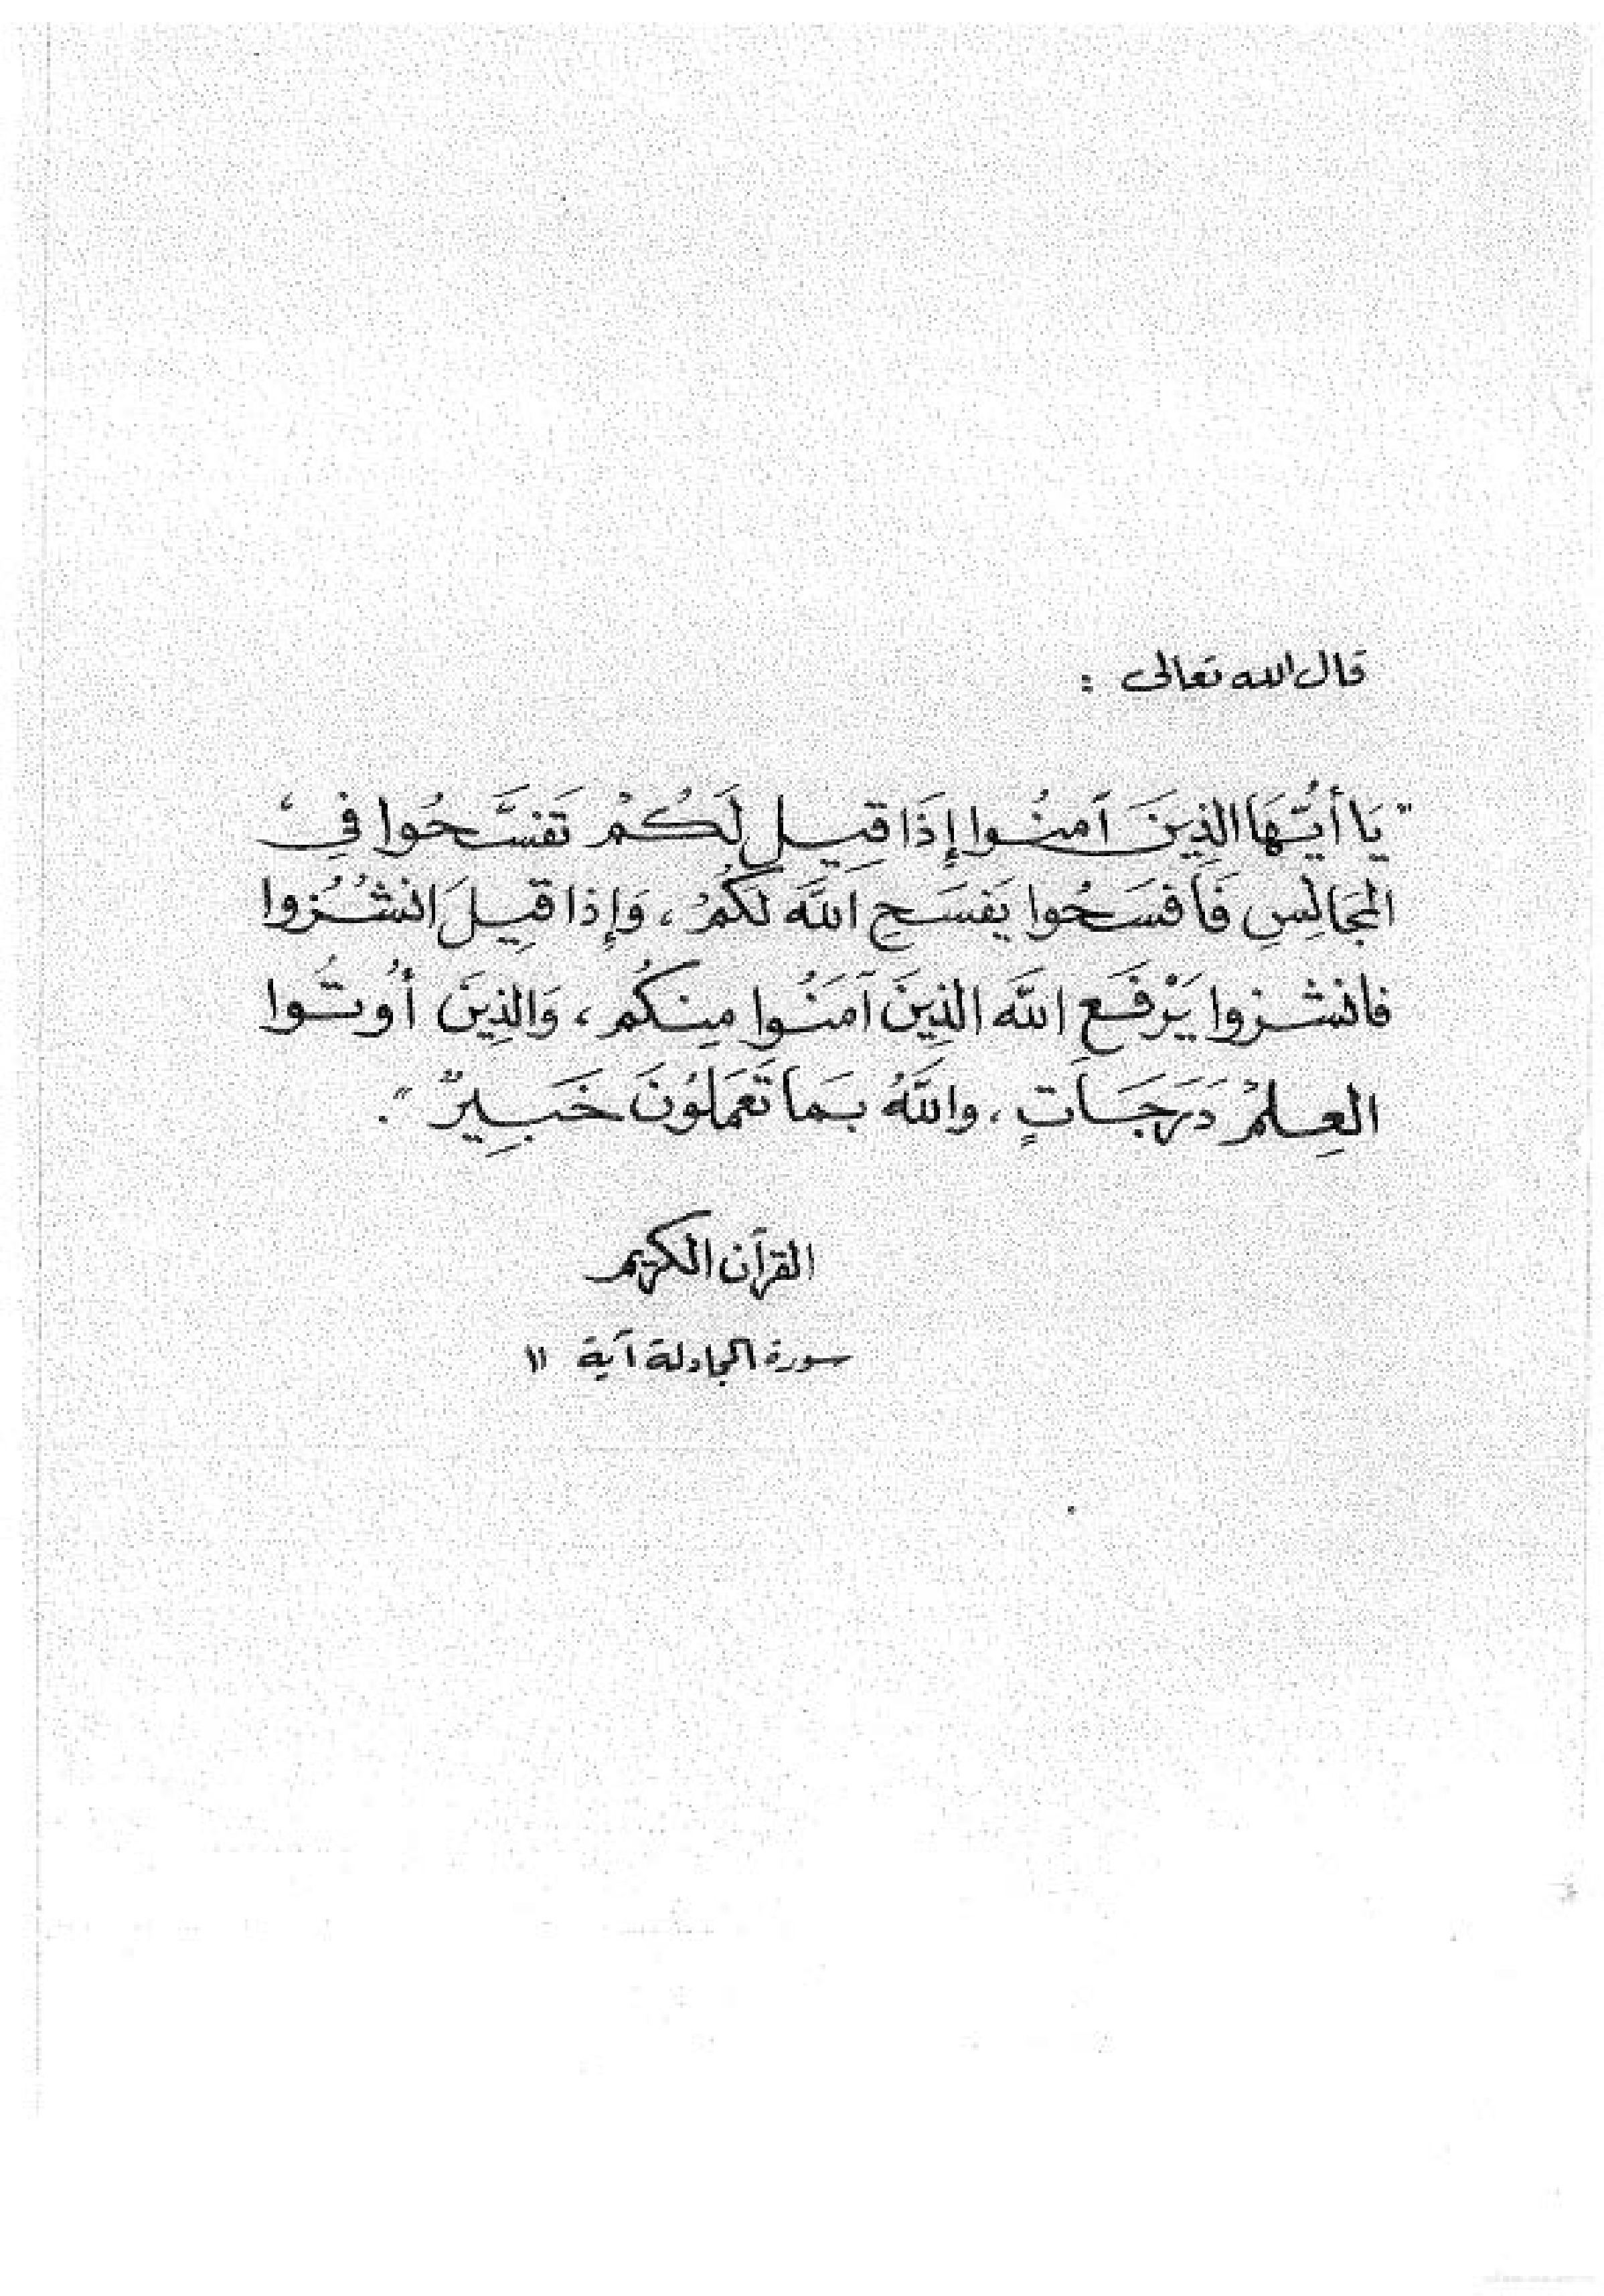 قال الله تعالى :
" يَا أَيُّهَا الذِينَ آمنُوا إِذَا قِيلَ لَكُمْ تَفَسَّحُوا فِي
المَجَالِسِ فَافسَحُوا يَفسَحِ اللَّه لَكُمْ ، وَإِذا قِيلَ انشُـُزوا
فانشزوا يَرْفَعِ اللَّه الذِينَ آمَنُوا مِنكُم ، وَالذِينَ أُوتُوا
العِلمْ دَرَجَاتٍ ، واللَّهُ بـمَا تَعمَلوُنَ خَبِيرٌ " .
القرآن الكريم
سورة المجادلة آية ١١